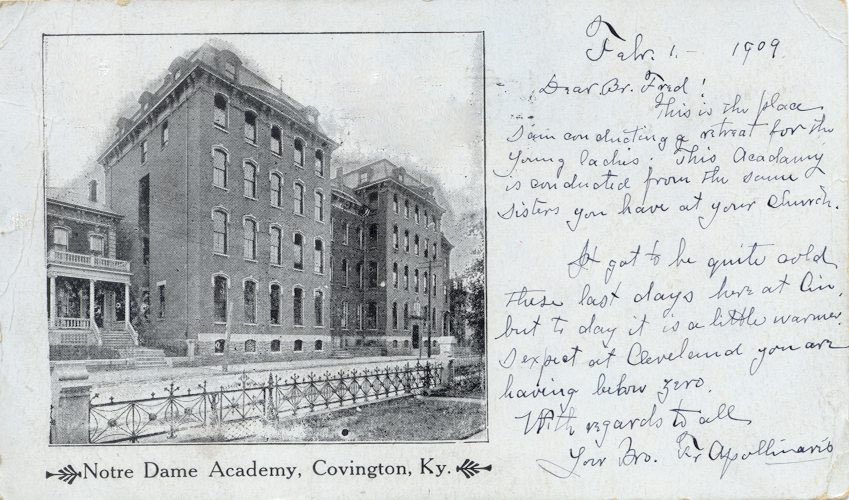 Febr. 1. - 1909.
Dear Br. Fred!
This is the place
I am conducting a retreat for the
young ladies. This Academy
is conducted from the same
sisters you have at your Church.
It got to be quite cold
these last days here at Cin.
but to day it is a little warmer.
I expect at Cleveland you are
having below zero.
With regards to all
Your Bro. Fr Apollinaris
Notre Dame Academy, Covington, Ky.